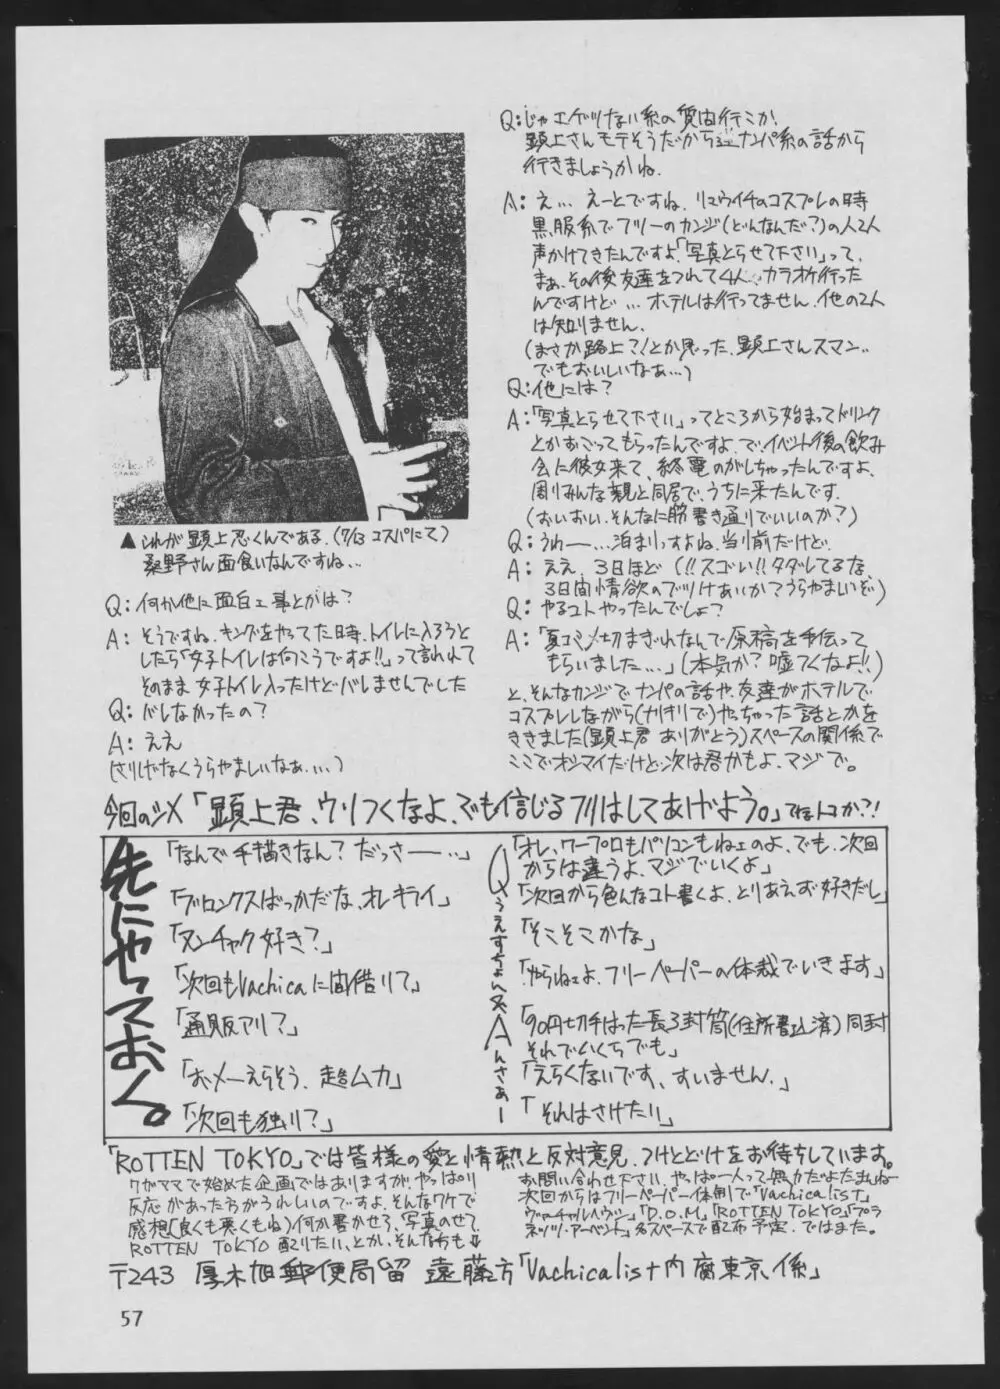 ▲これが顕上忍くんである.(7/13 コスパにて)
桑野さん面食いなんですね...
Q:何か他に面白い事とかは?
A:そうですね.キングをやってた時.トイレに入ろうと
したら「女子トイレは向こうですよ!!」って言われて
そのまま女子トイレ入ったけどバレませんでした
Q:バレなかったの?
A:ええ
(さりげなくうらやましいなぁ....)
Q:じゃエゲツない系の質問行こか.
顕上さんモテそうだから逆ナンパ系の話から
行きましょうかね.
A:え... えーとですね、リュウイチのコスプレの時
黒服系でフリーのカンジ(どんなんだ?)の人2人
声かけてきたんですよ「写真とらせて下さい」って.
まぁ、その後友達をつれて4人でカラオケ行った
んですけど...ホテルは行ってません.他の2人
は知りません.
(まさか路上?!とか思った.顕上さんスマン..
でもおいしいなぁ...)
Q:他には?
A:「写真とらせて下さい」ってところから始まってドリンク
とかおごってもらったんですよ.で.イベント後の飲み
会に彼女来て、終電のがしちゃったんですよ、
周りみんな親と同居で、うちに来たんです.
(おいおい.そんなに筋書き通りでいいのか?)
Q:うわー...泊まりっすよね.当り前だけど.
A:ええ.3日ほど(!!スゴい!!タダレてるな.
3日間情欲のでつけあいか?うらやまいいぞ)
Q:やるコトやったんでしょ?
A:「夏コミ〆切まぎれなんで原稿を手伝って
もらいました...」(本気か?嘘つくなよ!!)
と、そんなカンジでナンパの話や、友達がホテルで
コスプレしながら(ナリキリで)やっちゃった話とかを
ききました(顕上君 ありがとう)スペースの関係で
ここでオシマイだけど次は君かもよ.マジで。
今回のシメ「顕上君、ウソつくなよ、でも信じるフリはしてあげよう。」てなトコか?!
先にやっておく。
「なんで手描きなん? だっさー...」
「ブロンクスばっかだな、オレキライ」
「ヌンチャク好き?」
「次回もVachicaに間借りて」
「通販アリ?」
「おメーえらそう.超ムカ」
「次回も独り?」
Qうえすちょん&Aんさぁー
「オレ、ワープロもパソコンもねェのよ、でも、次回
からは違うよ.マジでいくよ」
「次回から色んなコト書くよ.とりあえず好きだし」
「そこそこかな」
「やらねェよ、フリーペーパーの体裁でいきます」
「90円切手はった長3封筒(住所書込済)同封
それでいくらでも」
「えらくないです、すいません.」
「それはさけたい」
「ROTTEN TOKYO」では皆様の愛と情熱と反対意見.つけとどけをお待ちしています。
ワガママで始めた企画ではありますが.やっぱり
反応があった方がうれしいのですよ.そんなワケで
感想(良くも悪くもね)何か書かせろ、写真のせて.
ROTTEN TOKYO 配りたい、とか、そんな方も↓
お問い合わせ下さい.やっぱ一人って無力だよな.
次回からはフリーペーパー体制で「Vachicalist」
ヴァーチャルヘヴン」「D.O.M」「ROTTEN TOKYO」「プラ
ネッツ・アーベント」各スペースで配布予定.ではまた。
〒243 厚木旭郵便局留 遠藤方「Vachicalist内 腐東京係」
57